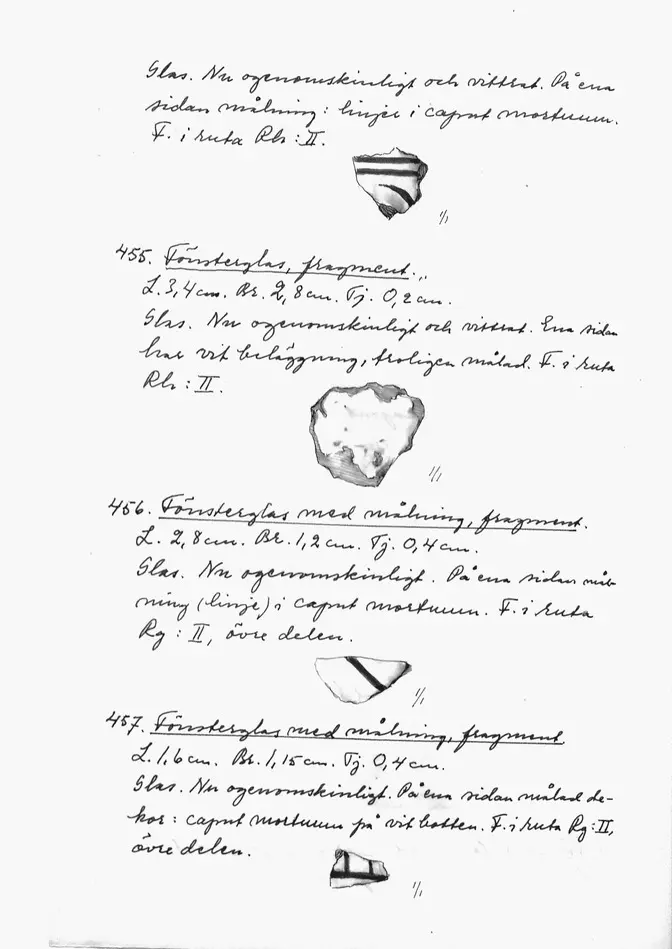 Glas. Nu ogenomskinligt och vittrat. På ena
sidan målning: linjer i caput mortuum.
F. i ruta Rh: II.
1/1
455. Fönsterglas, fragment.
L. 3,4 cm. Br. 2,8 cm. Tj. 0,2 cm.
Glas. Nu ogenomskinligt och vittrat. Ena sidan
har vit beläggning, troligen målad. F. i ruta
Rh: II.
1/1
456. Fönsterglas med målning, fragment.
L. 2,8 cm. Br. 1,2 cm. Tj. 0,4 cm.
Glas. Nu ogenomskinligt. På ena sidan mål-
ning (linje) i caput mortuum. F. i ruta
Rg: II, övre delen.
1/1
457. Fönsterglas med målning, fragment
L. 1,6 cm. Br. 1,15 cm. Tj. 0,4 cm.
Glas. Nu ogenomskinligt. På ena sidan målad de-
kor: caput mortuum på vit botten. F. i ruta Rg: II,
övre delen.
1/1